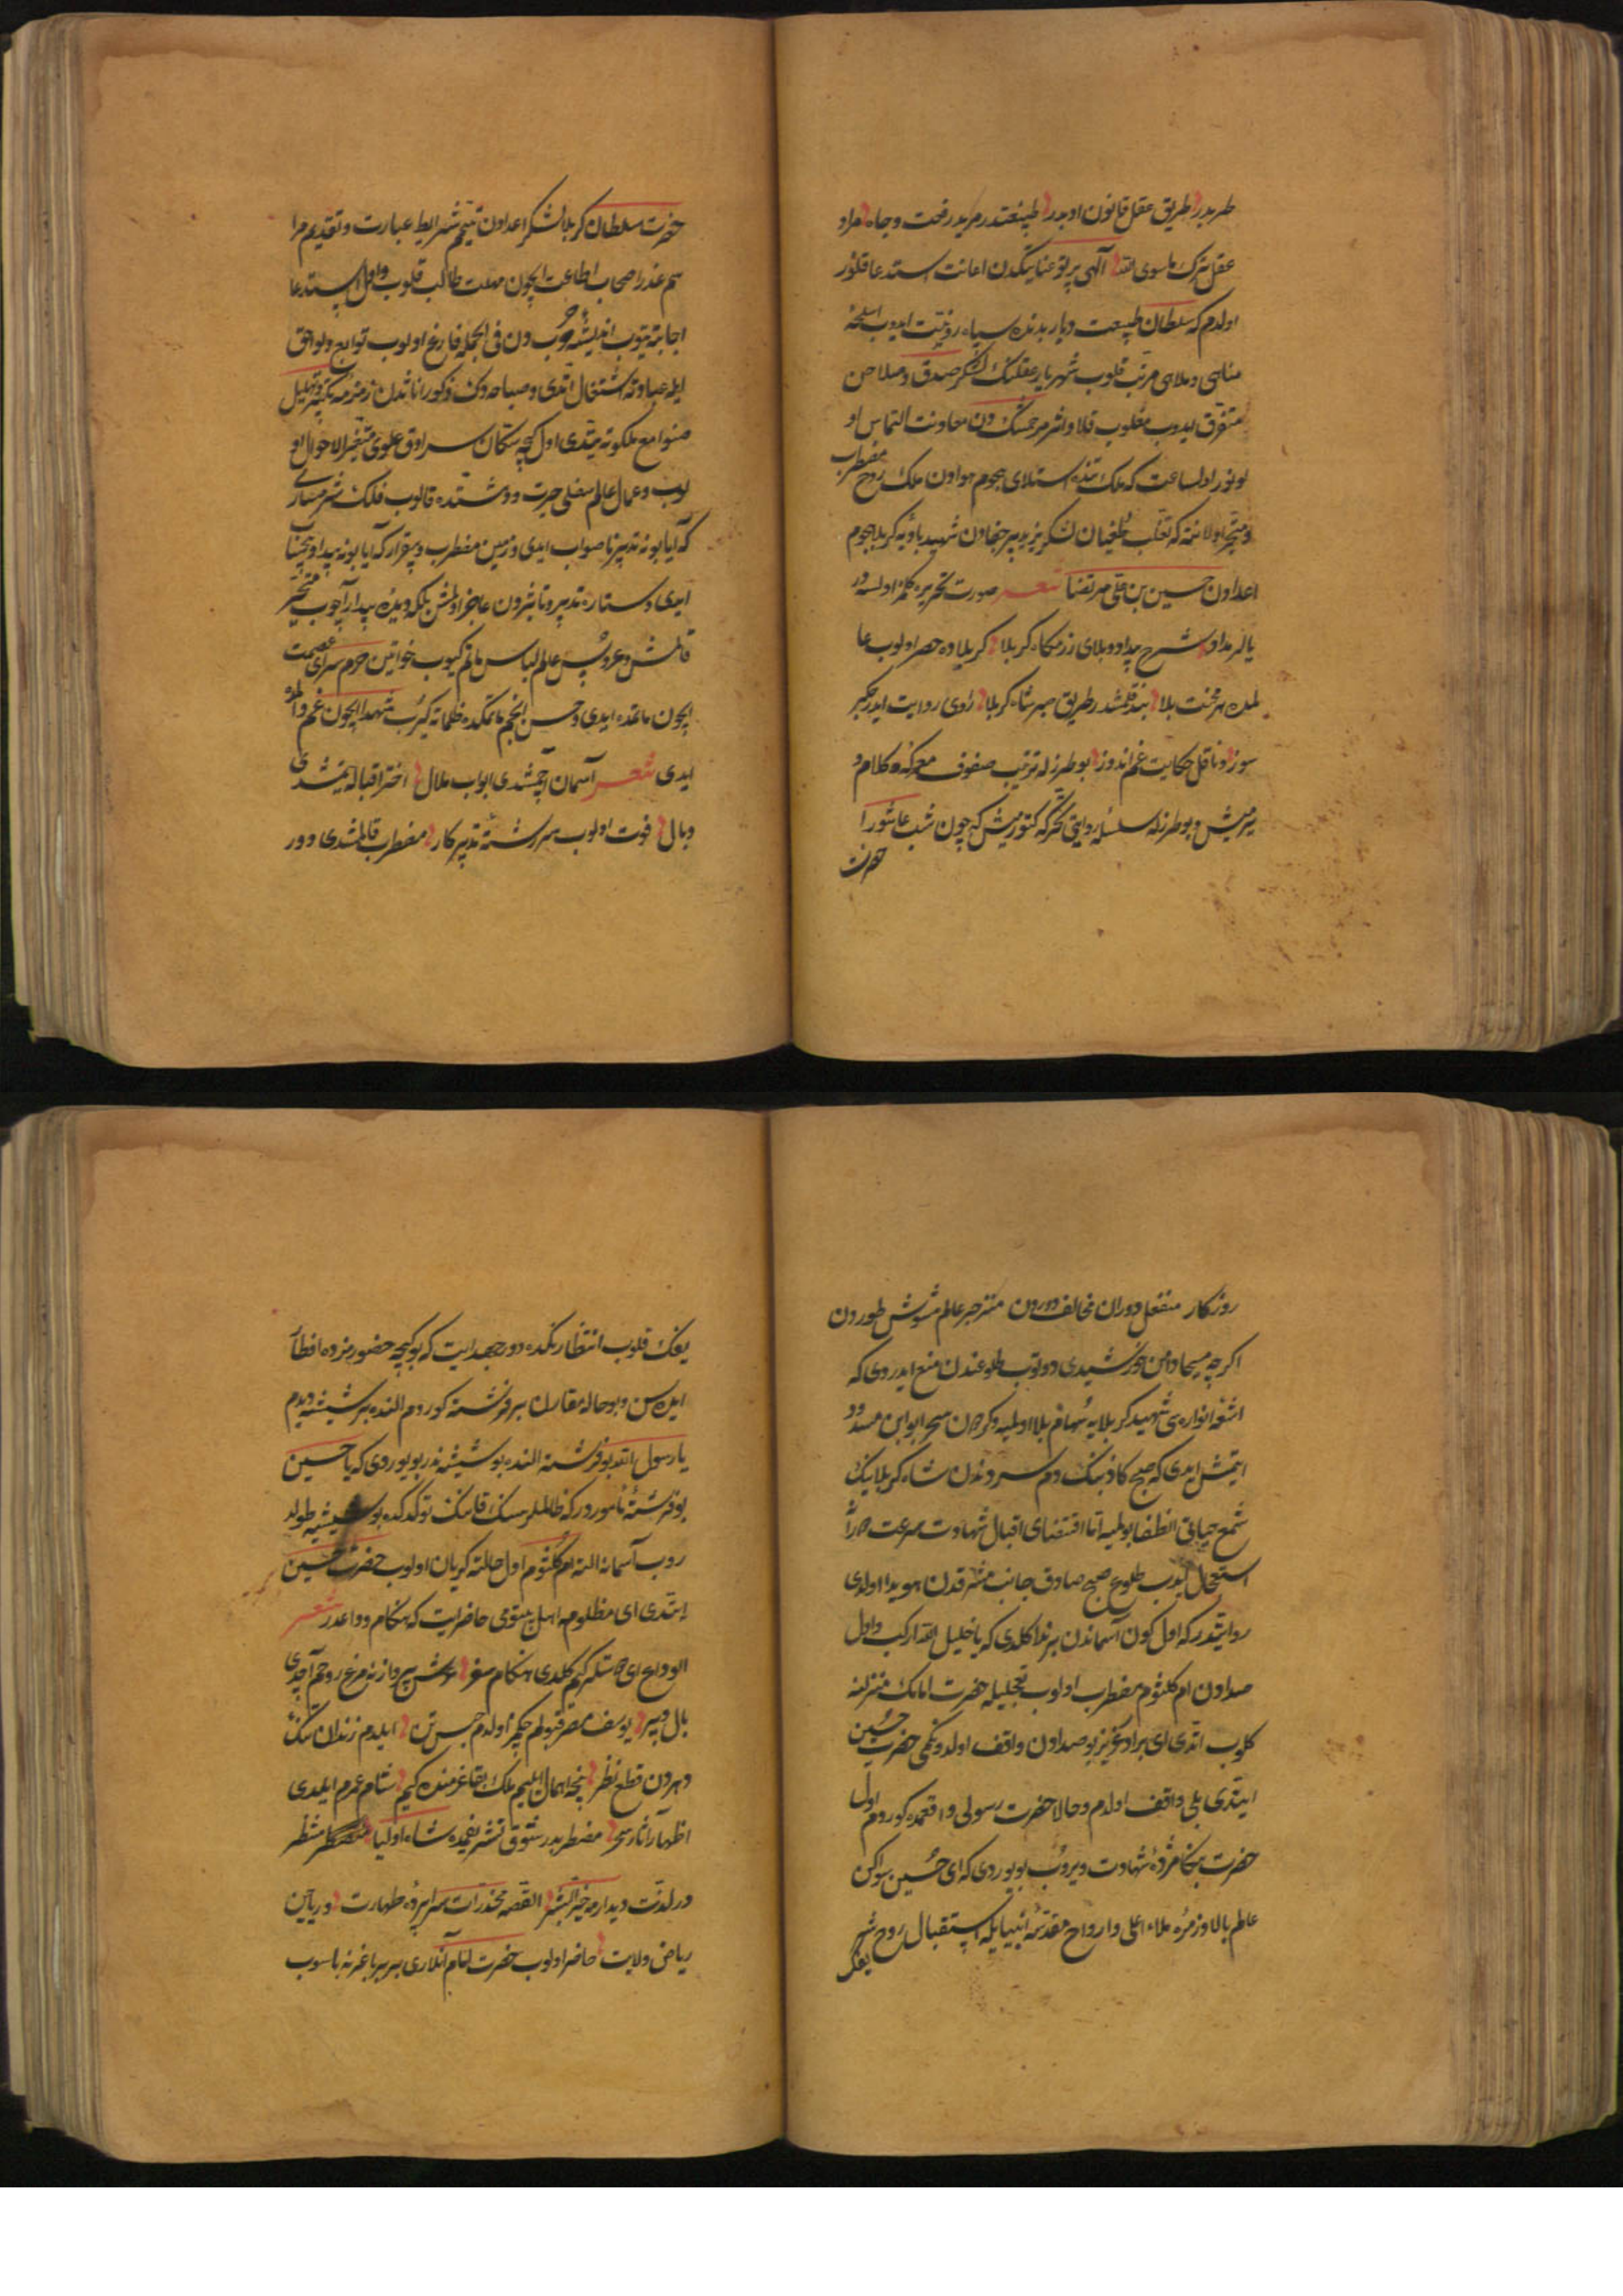 طریدر طریق عقل قانون اوبدر طبیعتدر مریدر رخت وجاه مراد
عقل ترک ماسوی الله آلهی پرتو عنایتکدن اعانت استدعا قلور
اولدم که سلطان طبیعت دیار بدنده سپاه رذیت ایدوب اسلحهٔ
مناهی وملاهی مرتب قلوب شهریار عقلنک لشکر صدق وصلاحن
متفرق ایدوب مغلوب قلا واثر مرحمتنکدن معاونت التماس او
لونور اول ساعت که ملک تنده استیلای هجوم هوادن ملک روح مضطرب
ومتحیر اولا نته که تغلب طغیان لشکر یزید پر جفادن شهید بادیه کربلا هجوم
اعدادن حسین بن علی مرتضا شعر صورت تحریره کلمز اولسه در
یالر مداد شرح بیداد وبلای رزمکاه کربلا کربلاده حصر اولوب عا
لمده هر محنت بلا بند قلمشدر طریق صبر شاه کربلا راوی روایت ایدر جکر
سوز وناقل حکایت غم اندوز بو طرزله ترتیب صفوف معرکهٔ کلام و
یرمیش وبو طرزله سلسلهٔ روایتی تحریره کتورمیش که چون شب عاشورا
حضرت
حضرت سلطان کربلا لشکر اعدادن تتمیم شرایط عبادت وتقدیم مرا
سم عذر اصحاب اطاعت ایچون مهلت طالب قلوب واول استدعا
اجابته یتوب اندیشهٔ حربدن فی الجمله فارغ اولوب توابع ولواحق
ایله عبادته اشتغال اتدی وصباحه دک ذکور اناثدن زمزمه تکبیر وتهلیل
صوامع ملکوته یتدی اول کیجه سکان سرادق علوی متغیر الاحوال او
لوب وعمال عالم سفلی حیرت ودهشتده قالوب فلک شرمسار
که آیا بو نه تدبیر ناصواب ایدی وزمین مضطرب وبیقرار که آیا بو نه بیداد بیحساب
ایدی وستاره تدبیر وتأثیردن عاجز اولمش بلکه دیدهٔ بیدار آچوب متحیر
قالمش وعروس عالم لباس ماتم کیوب خواتین حرم سرای عصمت
ایچون ماتمده ایدی وحسن انجم ماتمکده ظلماته کیرب شهدا ایچون غم والمده
ایدی شعر آسمان آچمشدی ابواب ملال اختر اقباله یتمشدی
وبال فوت اولوب سررشته تدبیر کار مضطرب قالمشدی دور
روزکار منفعل دوران مخالف دوردن منزجر عالم مشوش طوردن
اکرچه مسیحا دامن خورشیدی دوتوب طلوعندن منع ایدردی که
اشعهٔ انواری شهید کربلایه سهام بلا اولمیه وکردون سحر ابوابن مسدود
ایتمش ایدی که صبح کاذبنک دم سردندن شاه کربلانک
شمع حیاتی انطفا بولمیه اما اقتضای اقبال شهادت سرعت
استعجال ایدب طلوع صبح صادق جانب مشرقدن هویدا اولدی
روایتدر که اول کون آسماندن بر ندا کلدی که یا خلیل الله ارکب واول
صدادن ام کلثوم مضطرب اولوب تعجیلیله حضرت امامک منزلنه
کلوب اتدی ای برادر عزیز بو صدادن واقف اولدونکمی حضرت حسین
ایتدی بلی واقف اولدم وحالا حضرت رسولی واقعمده کوردم اول
حضرت بنکا مژدهٔ شهادت ویروب بویوردی که ای حسین سواکن
عالم بالا وزمرهٔ ملاء اعلی وارواح مقدسهٔ انبیایله استقبال روح شر
یفک
یفک قلوب انتظارنکده دور جهد ایت که بو کیجه حضورمزده افطار
ایده سن وبو حاله مقارن بر فرشته کوردم النده بر شیشه دیدم
یا رسول الله بو فرشته النده بو شیشه ندر بویوردی که یا حسین
بو فرشته مأموردر که ظالملر سنک قانک توکدکده بو شیشیه طولد
روب آسمانه الته ام کلثوم اول حالته کریان اولوب حضرت حسین
ایتدی ای مظلومه اهل بیتومی حاضر ایت که هنکام وداعدر شعر
الوداع ای دوستلر کیم کلدی هنکام سفر عرش پروازینه مرغ روحم آچدی
بال وپر یوسف مصر قبولم چکمز اولدم حبس تن ایلدم زندان تنک
دهردن قطع نظر نیچه اهمال ایلیم ملک بقا عزمنده کیم شام عمرم ایلدی
اظهار آثار سحر مضطربدر شوق تشریفمده شاه اولیا منتظر
در لذت دیدارمه خیر البشر القصه مخدرات سراپردهٔ طهارت وریاحین
ریاض ولایت حاضر اولوب حضرت امام آنلاری بربر باغرنه باسوب